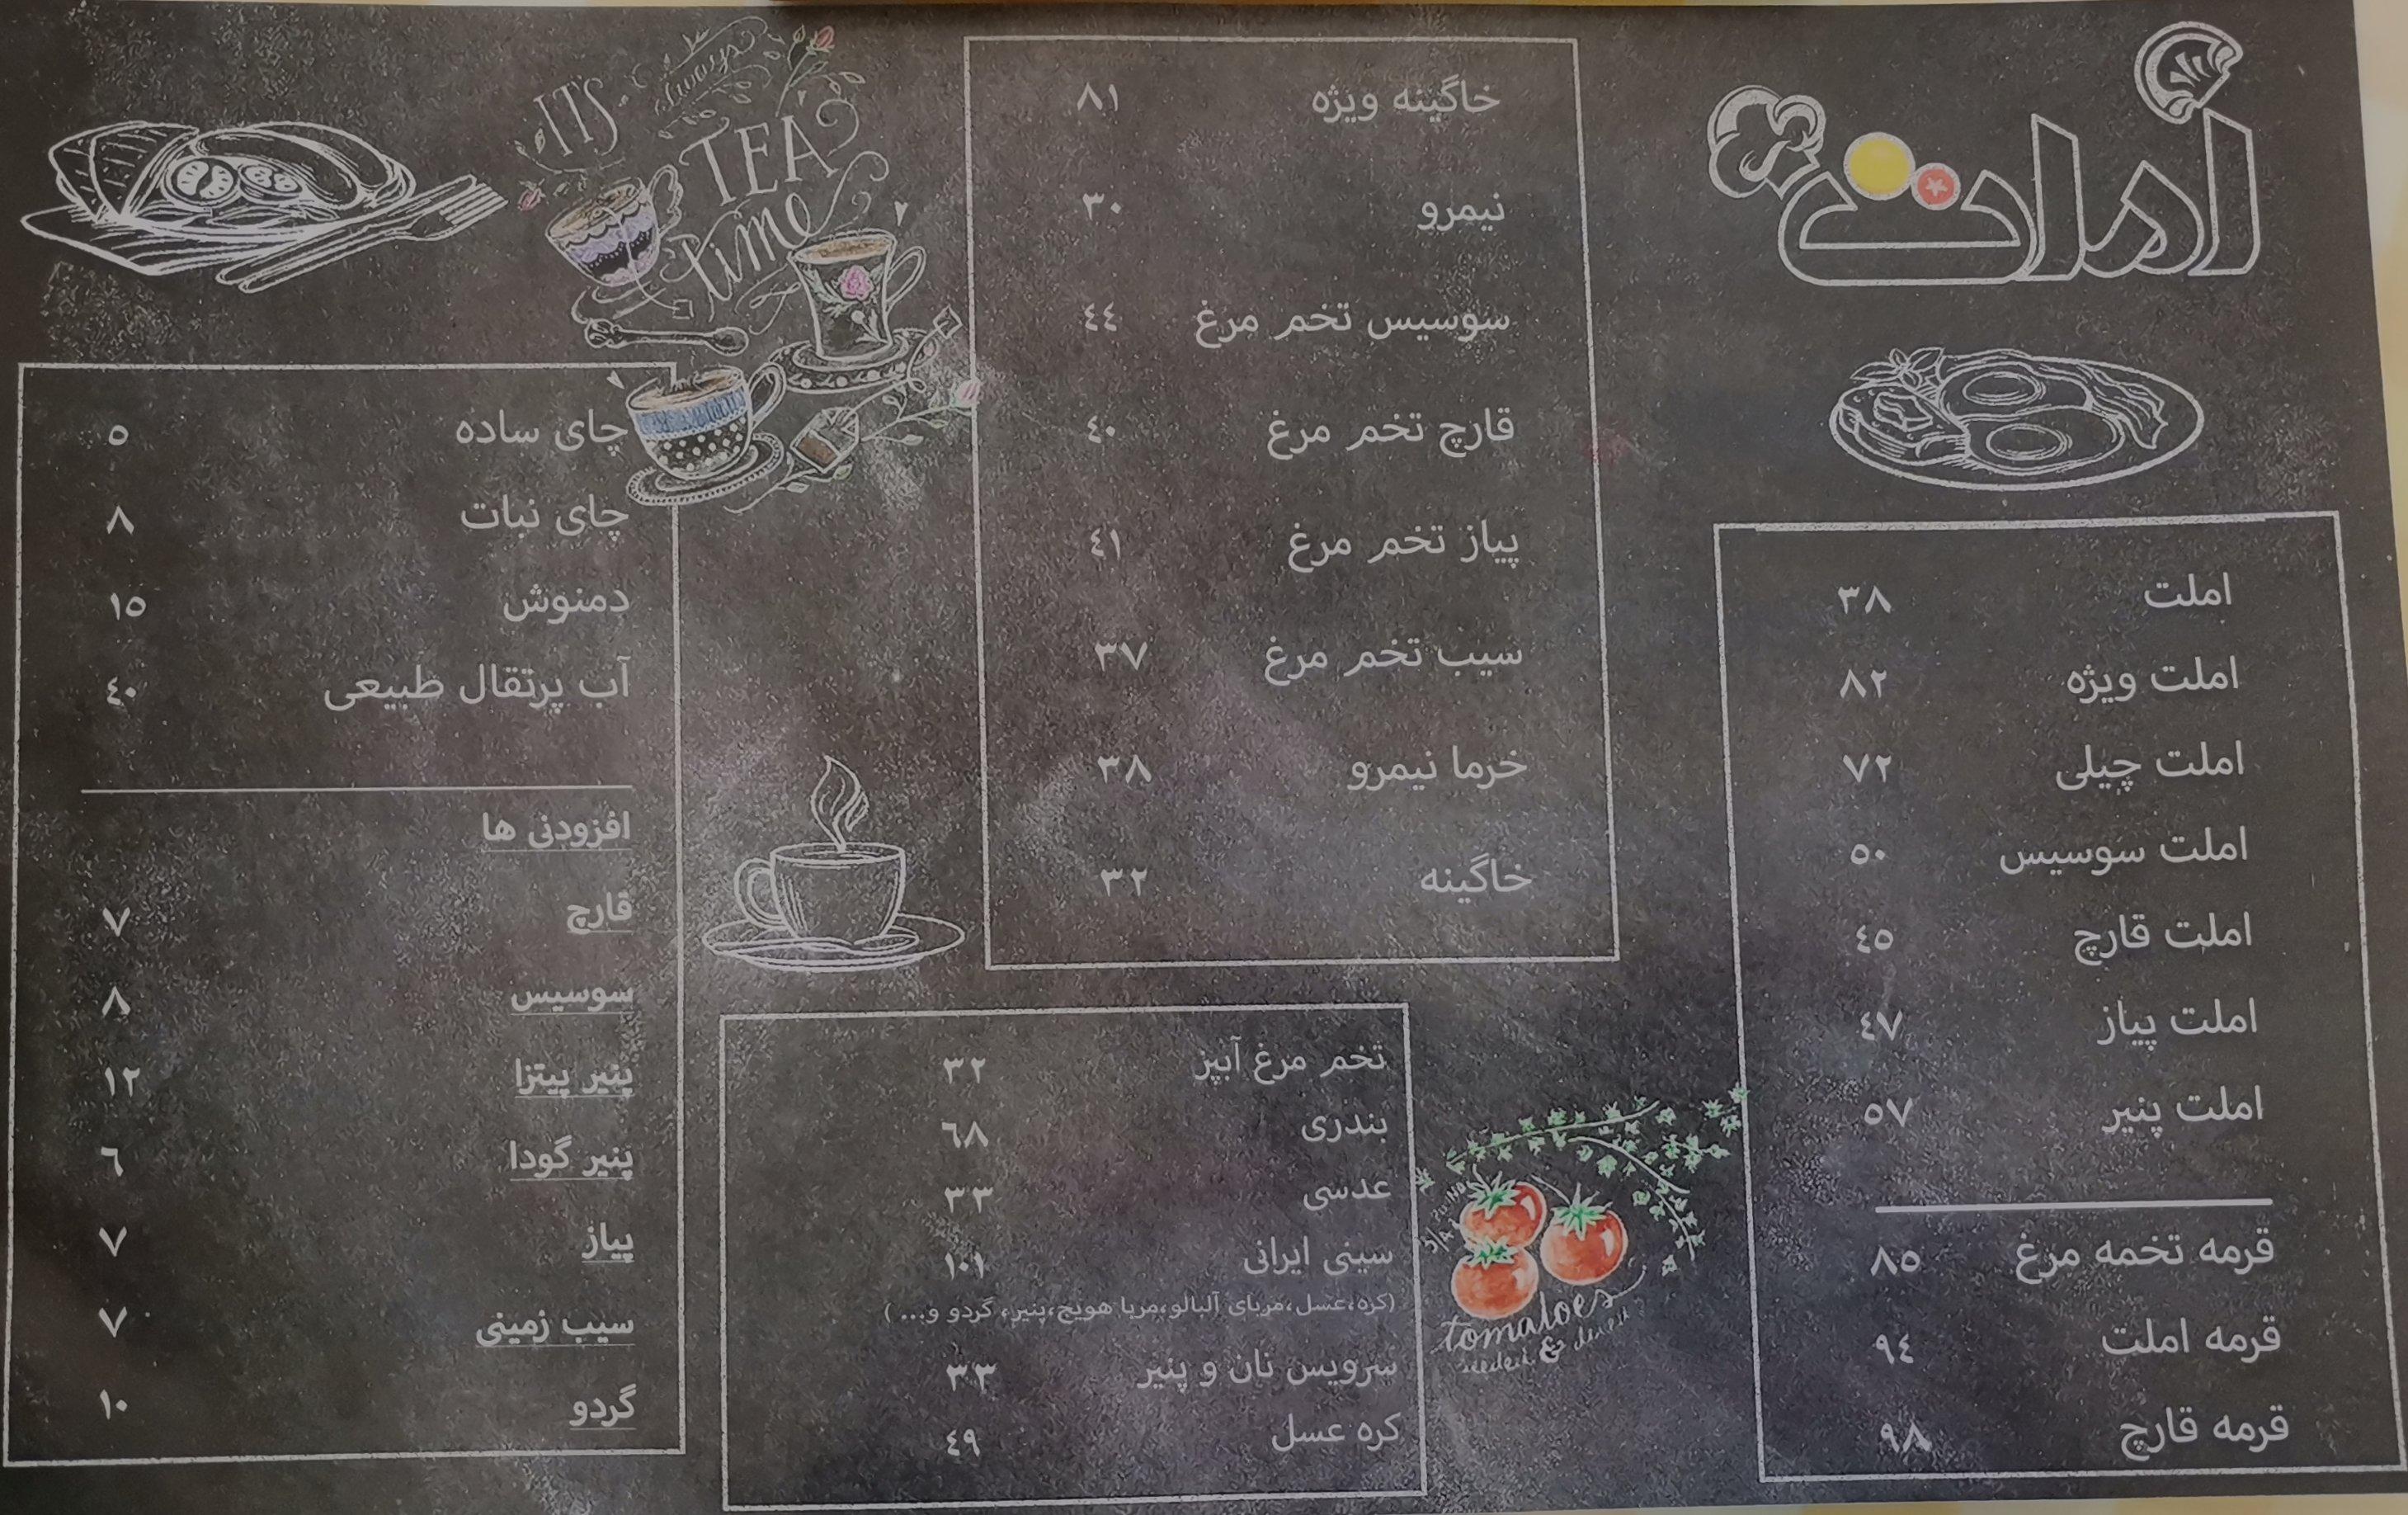 املت
املت ۳۸
املت ویژه ۸۲
املت چیلی ۷۲
املت سوسیس ۵۰
املت قارچ ٤٥
املت پیاز ٤٧
املت پنیر ٥٧
قرمه تخمه مرغ ۸٥
قرمه املت ۹٤
قرمه قارچ ۹۸
خاگینه ویژه ۸۱
نیمرو ۳۰
سوسیس تخم مرغ ٤٤
قارچ تخم مرغ ٤۰
پیاز تخم مرغ ٤۱
سیب تخم مرغ ۳۷
خرما نیمرو ۳۸
خاگینه ۳۲
تخم مرغ آبپز ۳۲
بندری ٦۸
عدسی ۳۳
سینی ایرانی ۱۰۱
(کره،عسل،مربای آلبالو،مربا هویج،پنیر، گردو و... )
سرویس نان و پنیر ۳۳
کره عسل ٤۹
tomatoes
&
IT'S always
TEA
time
چای ساده ٥
چای نبات ۸
دمنوش ۱٥
آب پرتقال طبیعی ٤۰
افزودنی ها
قارچ ۷
سوسیس ۸
پنیر پیتزا ۱۲
پنیر گودا ٦
پیاز ۷
سیب زمینی ۷
گردو ۱۰